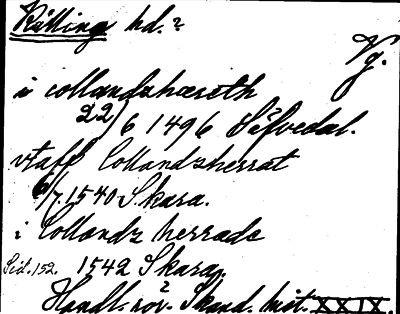 Kålling hd.?
Vg.
i collandzhæreth
22/6 1496 Söfvedal.
vtaff Collandzherrat
6/7 1540 Skara.
i Collandz herrade
Sid. 152. 1542 Skara.
Handl. rör. Skand. hist. XXIX.